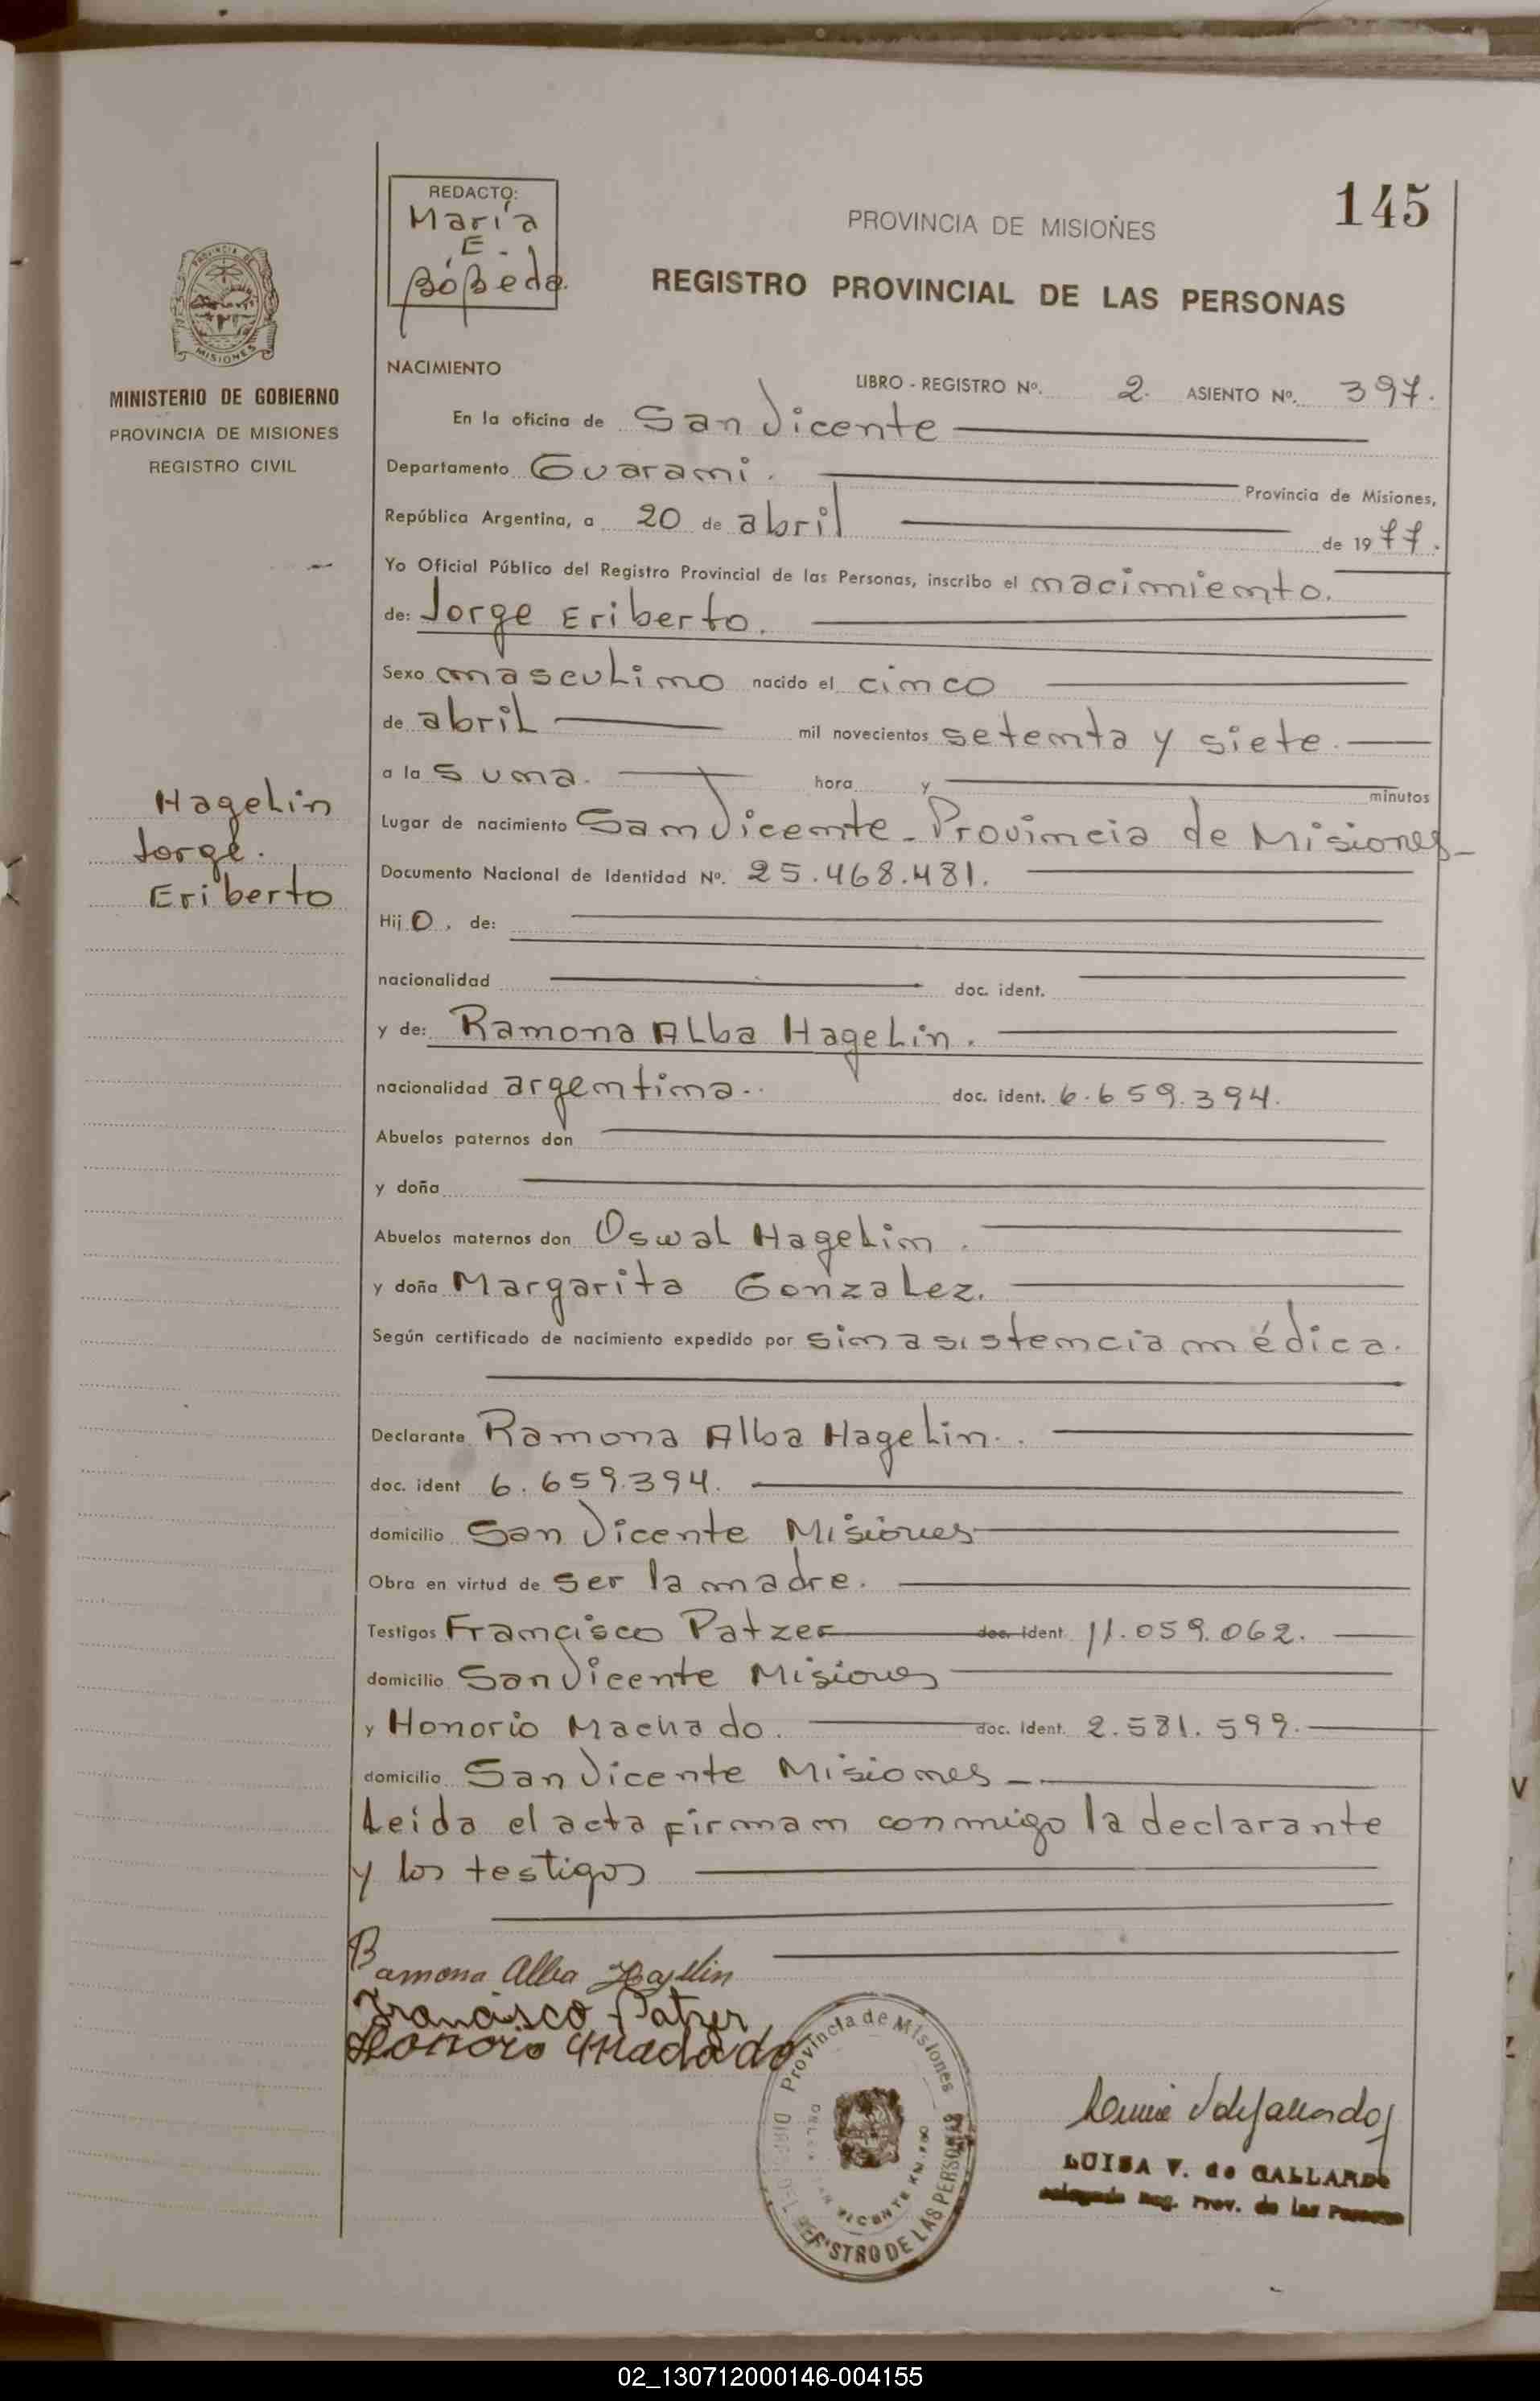 145
REDACTO:
María
E.
Bóbeda.
PROVINCIA DE MISIONES
REGISTRO PROVINCIAL DE LAS PERSONAS
PROVINCIA DE
MISIONES
MINISTERIO DE GOBIERNO
PROVINCIA DE MISIONES
REGISTRO CIVIL
NACIMIENTO
LIBRO - REGISTRO Nº. 2. ASIENTO Nº. 397.
En la oficina de San Vicente
Departamento Guarani. Provincia de Misiones,
República Argentina, a 20 de abril de 1977.
Yo Oficial Público del Registro Provincial de las Personas, inscribo el nacimiento.
de: Jorge Eriberto.
Sexo masculino nacido el cinco
de abril mil novecientos setenta y siete.
a las una. hora y minutos
Lugar de nacimiento San Vicente - Provincia de Misiones
Documento Nacional de Identidad Nº. 25.468.481.
Hijo, de:
nacionalidad doc. ident.
y de: Ramona Alba Hagelin.
nacionalidad argentina. doc. ident. 6.659.394.
Abuelos paternos don
y doña
Abuelos maternos don Oswal Hagelin.
y doña Margarita Gonzalez.
Según certificado de nacimiento expedido por sin asistencia médica.
Declarante Ramona Alba Hagelin.
doc. ident 6.659.394.
domicilio San Vicente Misiones
Obra en virtud de ser la madre.
Testigos Francisco Patzer doc. ident 11.059.062.
domicilio San Vicente Misiones
y Honorio Machado. doc. ident. 2.581.599.
domicilio San Vicente Misiones
Leida el acta firman conmigo la declarante
y los testigos
Hagelin
Jorge.
Eriberto
Ramona Alba Hagelin
Francisco Patzer
Honorio Machado
Provincia de Misiones
REGISTRO DE LAS PERSONAS
VICENTE
LUISA V. de GALLARDO
Reg. Prov. de las Personas
02_130712000146-004155